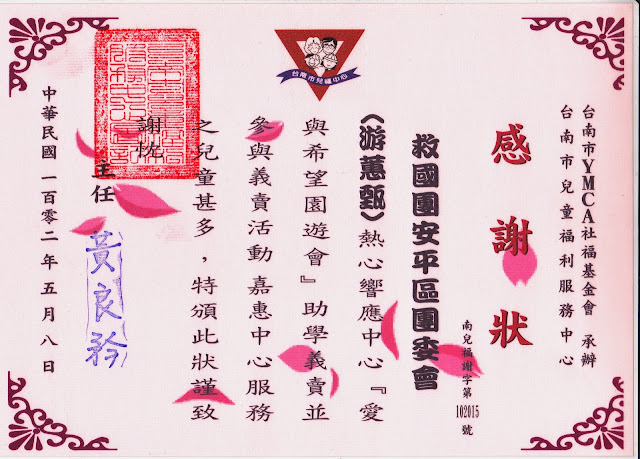 台南市兒福中心
台南市YMCA社福基金會 承辦
台南市兒童福利服務中心
感謝狀
南兒福謝字第102015號
救國團安平區團委會
(游蕙甄)熱心響應中心『愛
與希望園遊會』助學義賣並
參與義賣活動 嘉惠中心服務
之兒童甚多，特頒此狀謹致
謝忱
主任 黃良矜
中華民國一百零二年五月八日